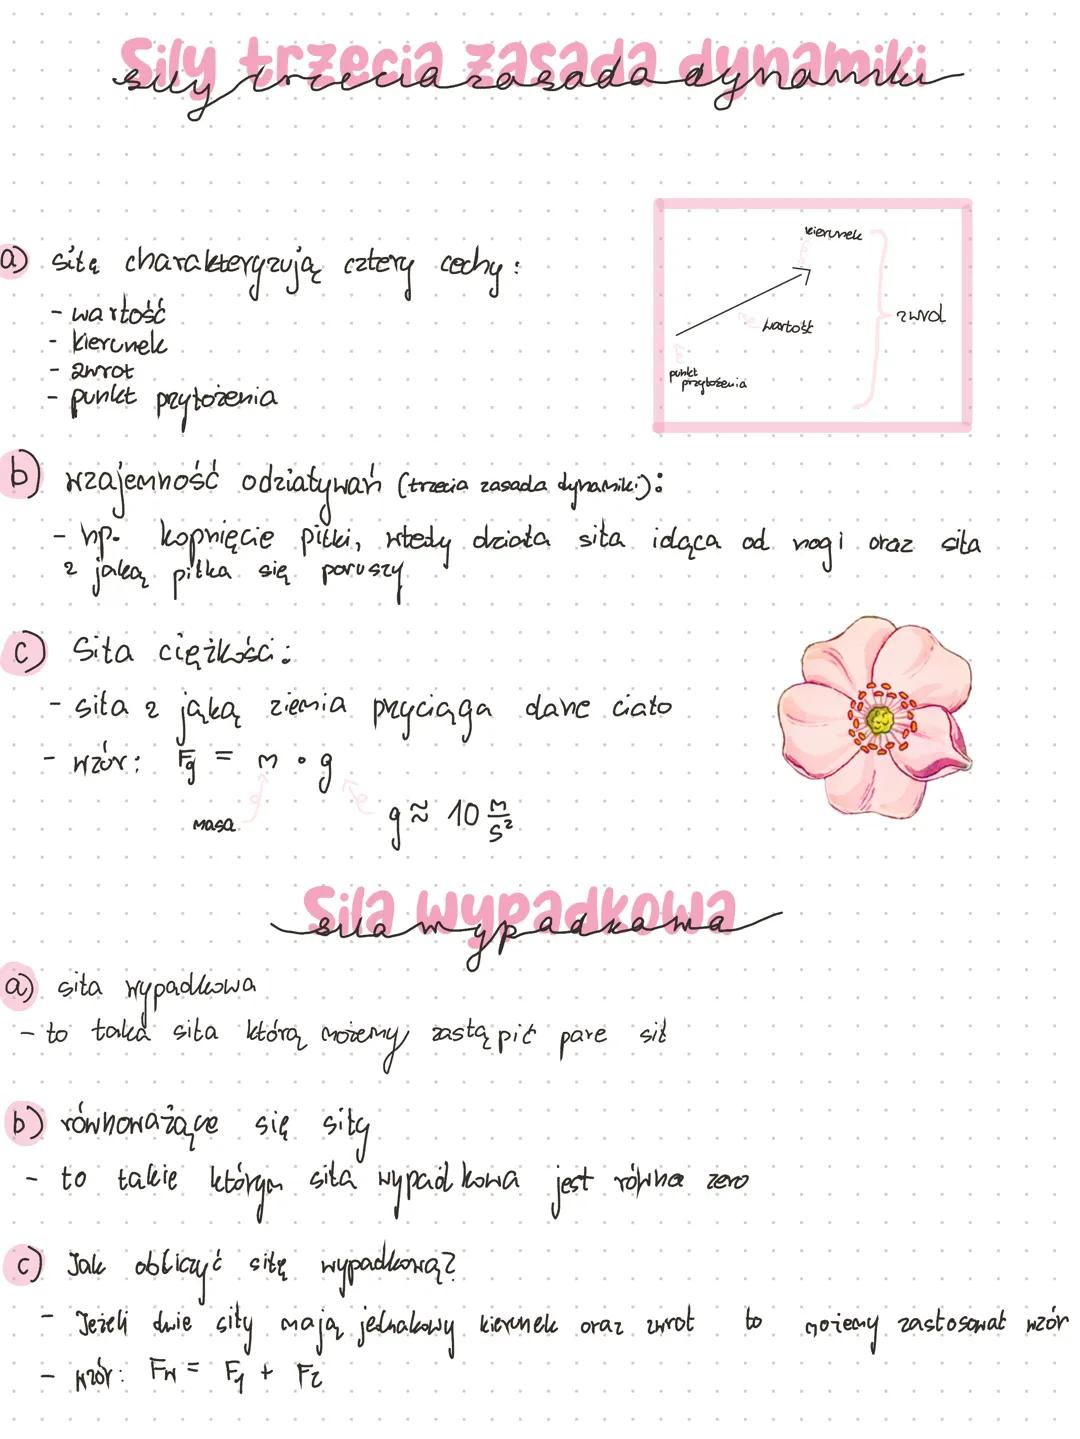 Siły trzecia zasada dynamiki
siły trzecia zasada dynamiki
a) siłę charakteryzują cztery cechy:
- wartość
- kierunek
- zwrot
- punkt przyłożenia
kierunek
wartość
zwrot
punkt
przyłożenia
b) wzajemność odziaływań (trzecia zasada dynamiki):
- np. kopnięcie piłki, wtedy działa siła idąca od nogi oraz siła
z jaką piłka się poruszy
c) Siła ciężkości:
- siła z jąką ziemia przyciąga dane ciało
- wzór: Fg = m · g
masa
g ≈ 10 m/s²
Siła wypadkowa
siła wypadkowa
a) siła wypadkowa
- to taka siła którą możemy zastąpić pare sił
b) równoważące się siły
- to takie którym siła wypadkowa jest równa zero
c) Jak obliczyć siłę wypadkową?
- Jeżeli dwie siły mają jednakowy kierunek oraz zwrot to możemy zastosować wzór
- wzór: Fw = F1 + F2